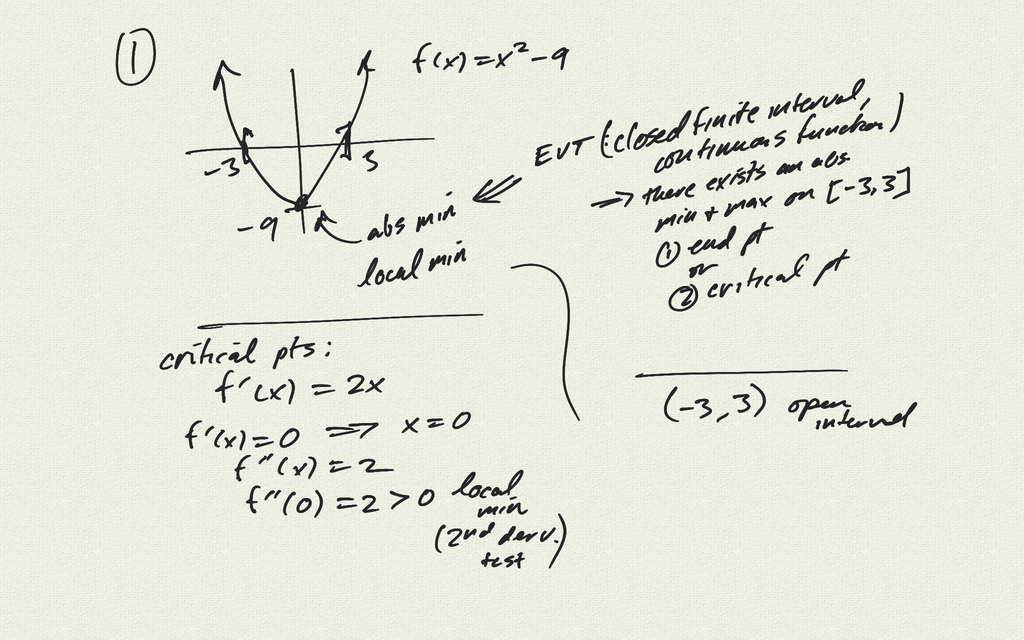 ①
f(x) = x² - 9
-3
3
-9
abs min
local min
EVT (: closed finite interval,
continuous function)
⇒ there exists an abs.
min + max on [-3,3]
① end pt
or
② critical pt
critical pts:
f'(x) = 2x
f'(x) = 0 ⇒ x = 0
f''(x) = 2
f''(0) = 2 > 0 local
min
(2nd derv.
test)
(-3,3) open
interval